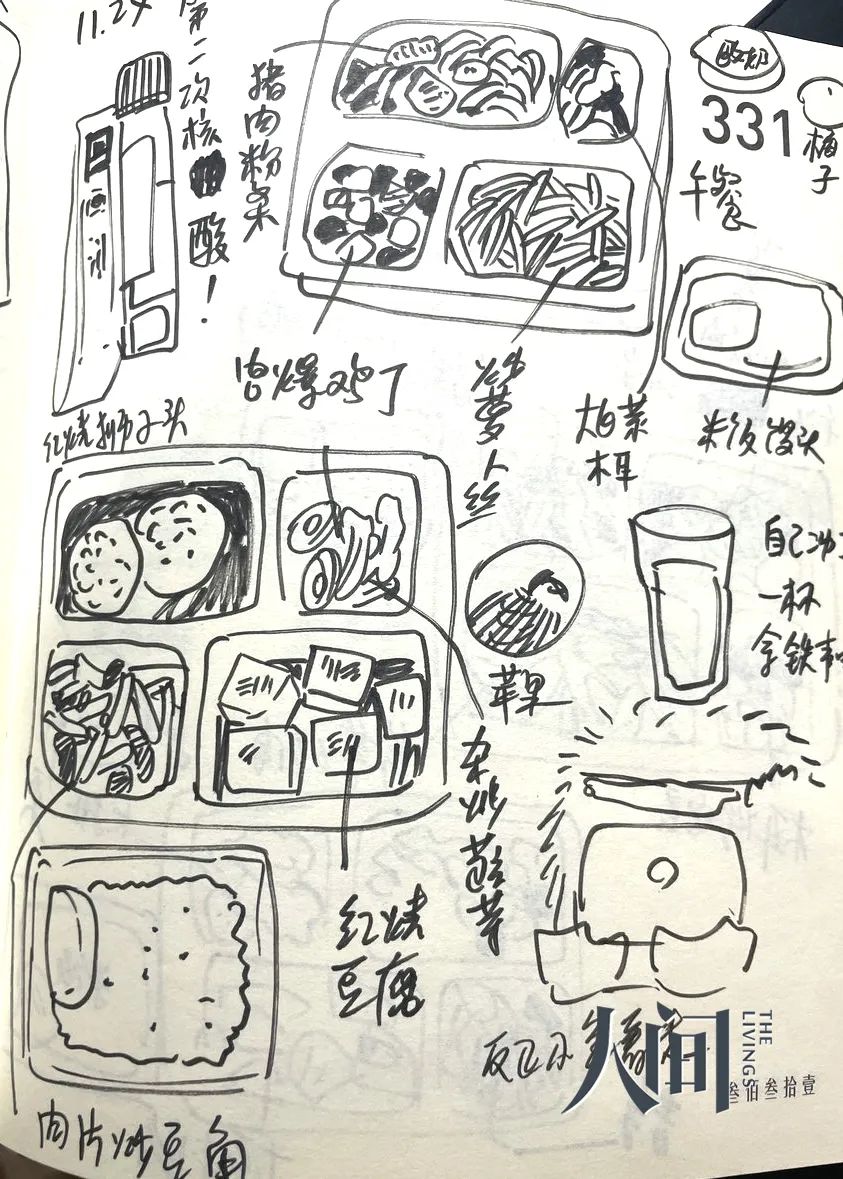 11.24
第二次核酸！
猪肉粉条
酸奶
331
柚子
午餐
宫爆鸡丁
炒萝卜丝
大白菜
木耳
米饭馒头
红烧狮子头
苹果
自己冲
一杯
拿铁
杂炒
红烧
豆腐
肉片炒豆角
人间
THE
LIVINGS
叁佰叁拾壹